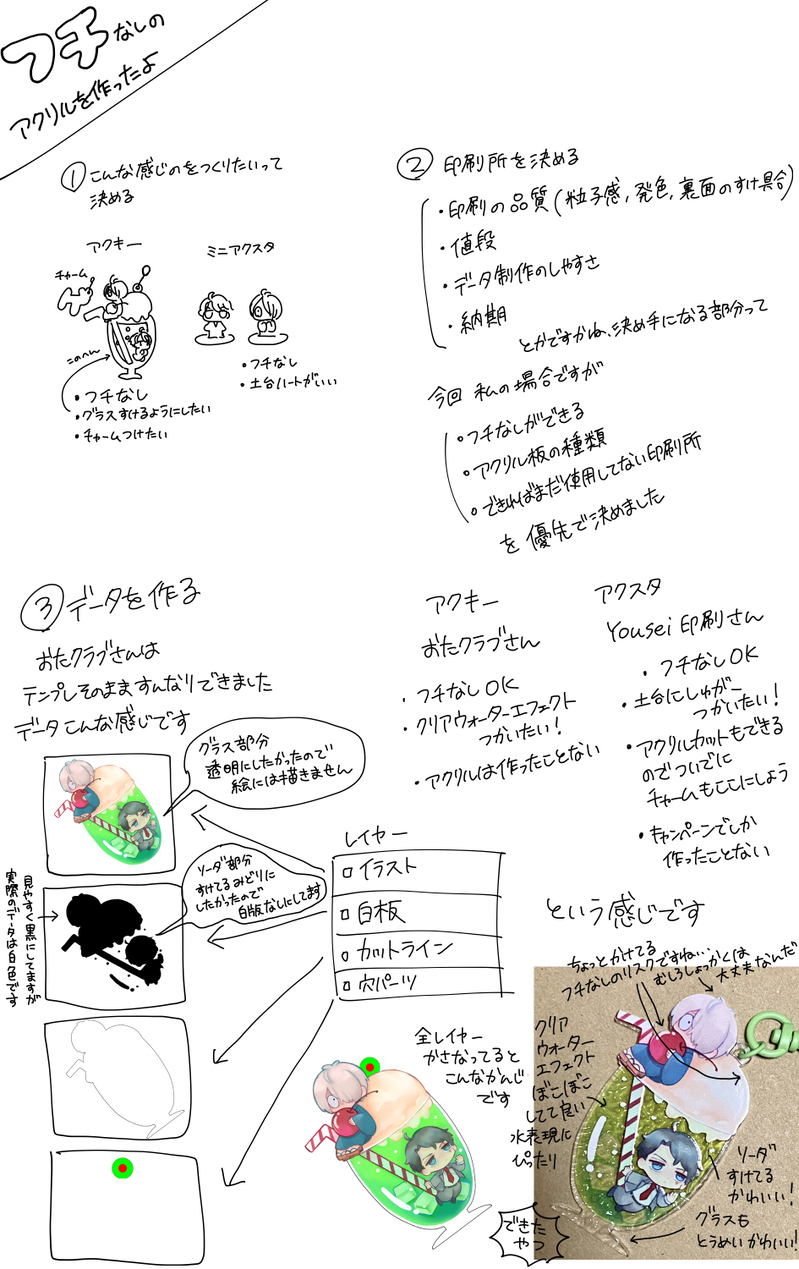 フチなしの
アクリルを作ったよ
① こんな感じのをつくりたいって
決める
アクキー
チャーム
このへん
・フチなし
・グラスすけるようにしたい
・チャームつけたい
ミニアクスタ
・フチなし
・土台ハートがいい
② 印刷所を決める
・印刷の品質(粒子感,発色,裏面のすけ具合)
・値段
・データ制作のしやすさ
・納期
とかですかね、決め手になる部分って
今回 私の場合ですが
○フチなしができる
○アクリル板の種類
○できればまだ使用してない印刷所
を優先で決めました
アクキー
おたクラブさん
・フチなしOK
・クリアウォーターエフェクト
つかいたい!
・アクリルは作ったことない
アクスタ
Yousei印刷さん
・フチなしOK
・土台にしゅがー
つかいたい!
・アクリルカットもできる
のでついでに
チャームもここにしよう
・キャンペーンでしか
作ったことない
という感じです
③ データを作る
おたクラブさんは
テンプレそのまますんなりできました
データこんな感じです
グラス部分
透明にしたかったので
絵には描きません
ソーダ部分
すけてるみどりに
したかったので
白版ないにしてます
見やすく黒にしてますが
実際のデータは白色です
レイヤー
イラスト
白板
カットライン
穴パーツ
全レイヤー
かさなってると
こんなかんじ
です
できた
やつ
ちょっとかけてる
フチなしのリスクですね…
むしろしょっかくは
大丈夫なんだ
クリア
ウォーター
エフェクト
ぼこぼこ
してて良い
水表現に
ぴったり
ソーダ
すけてる
かわいい!
グラスも
とうめいかわいい!